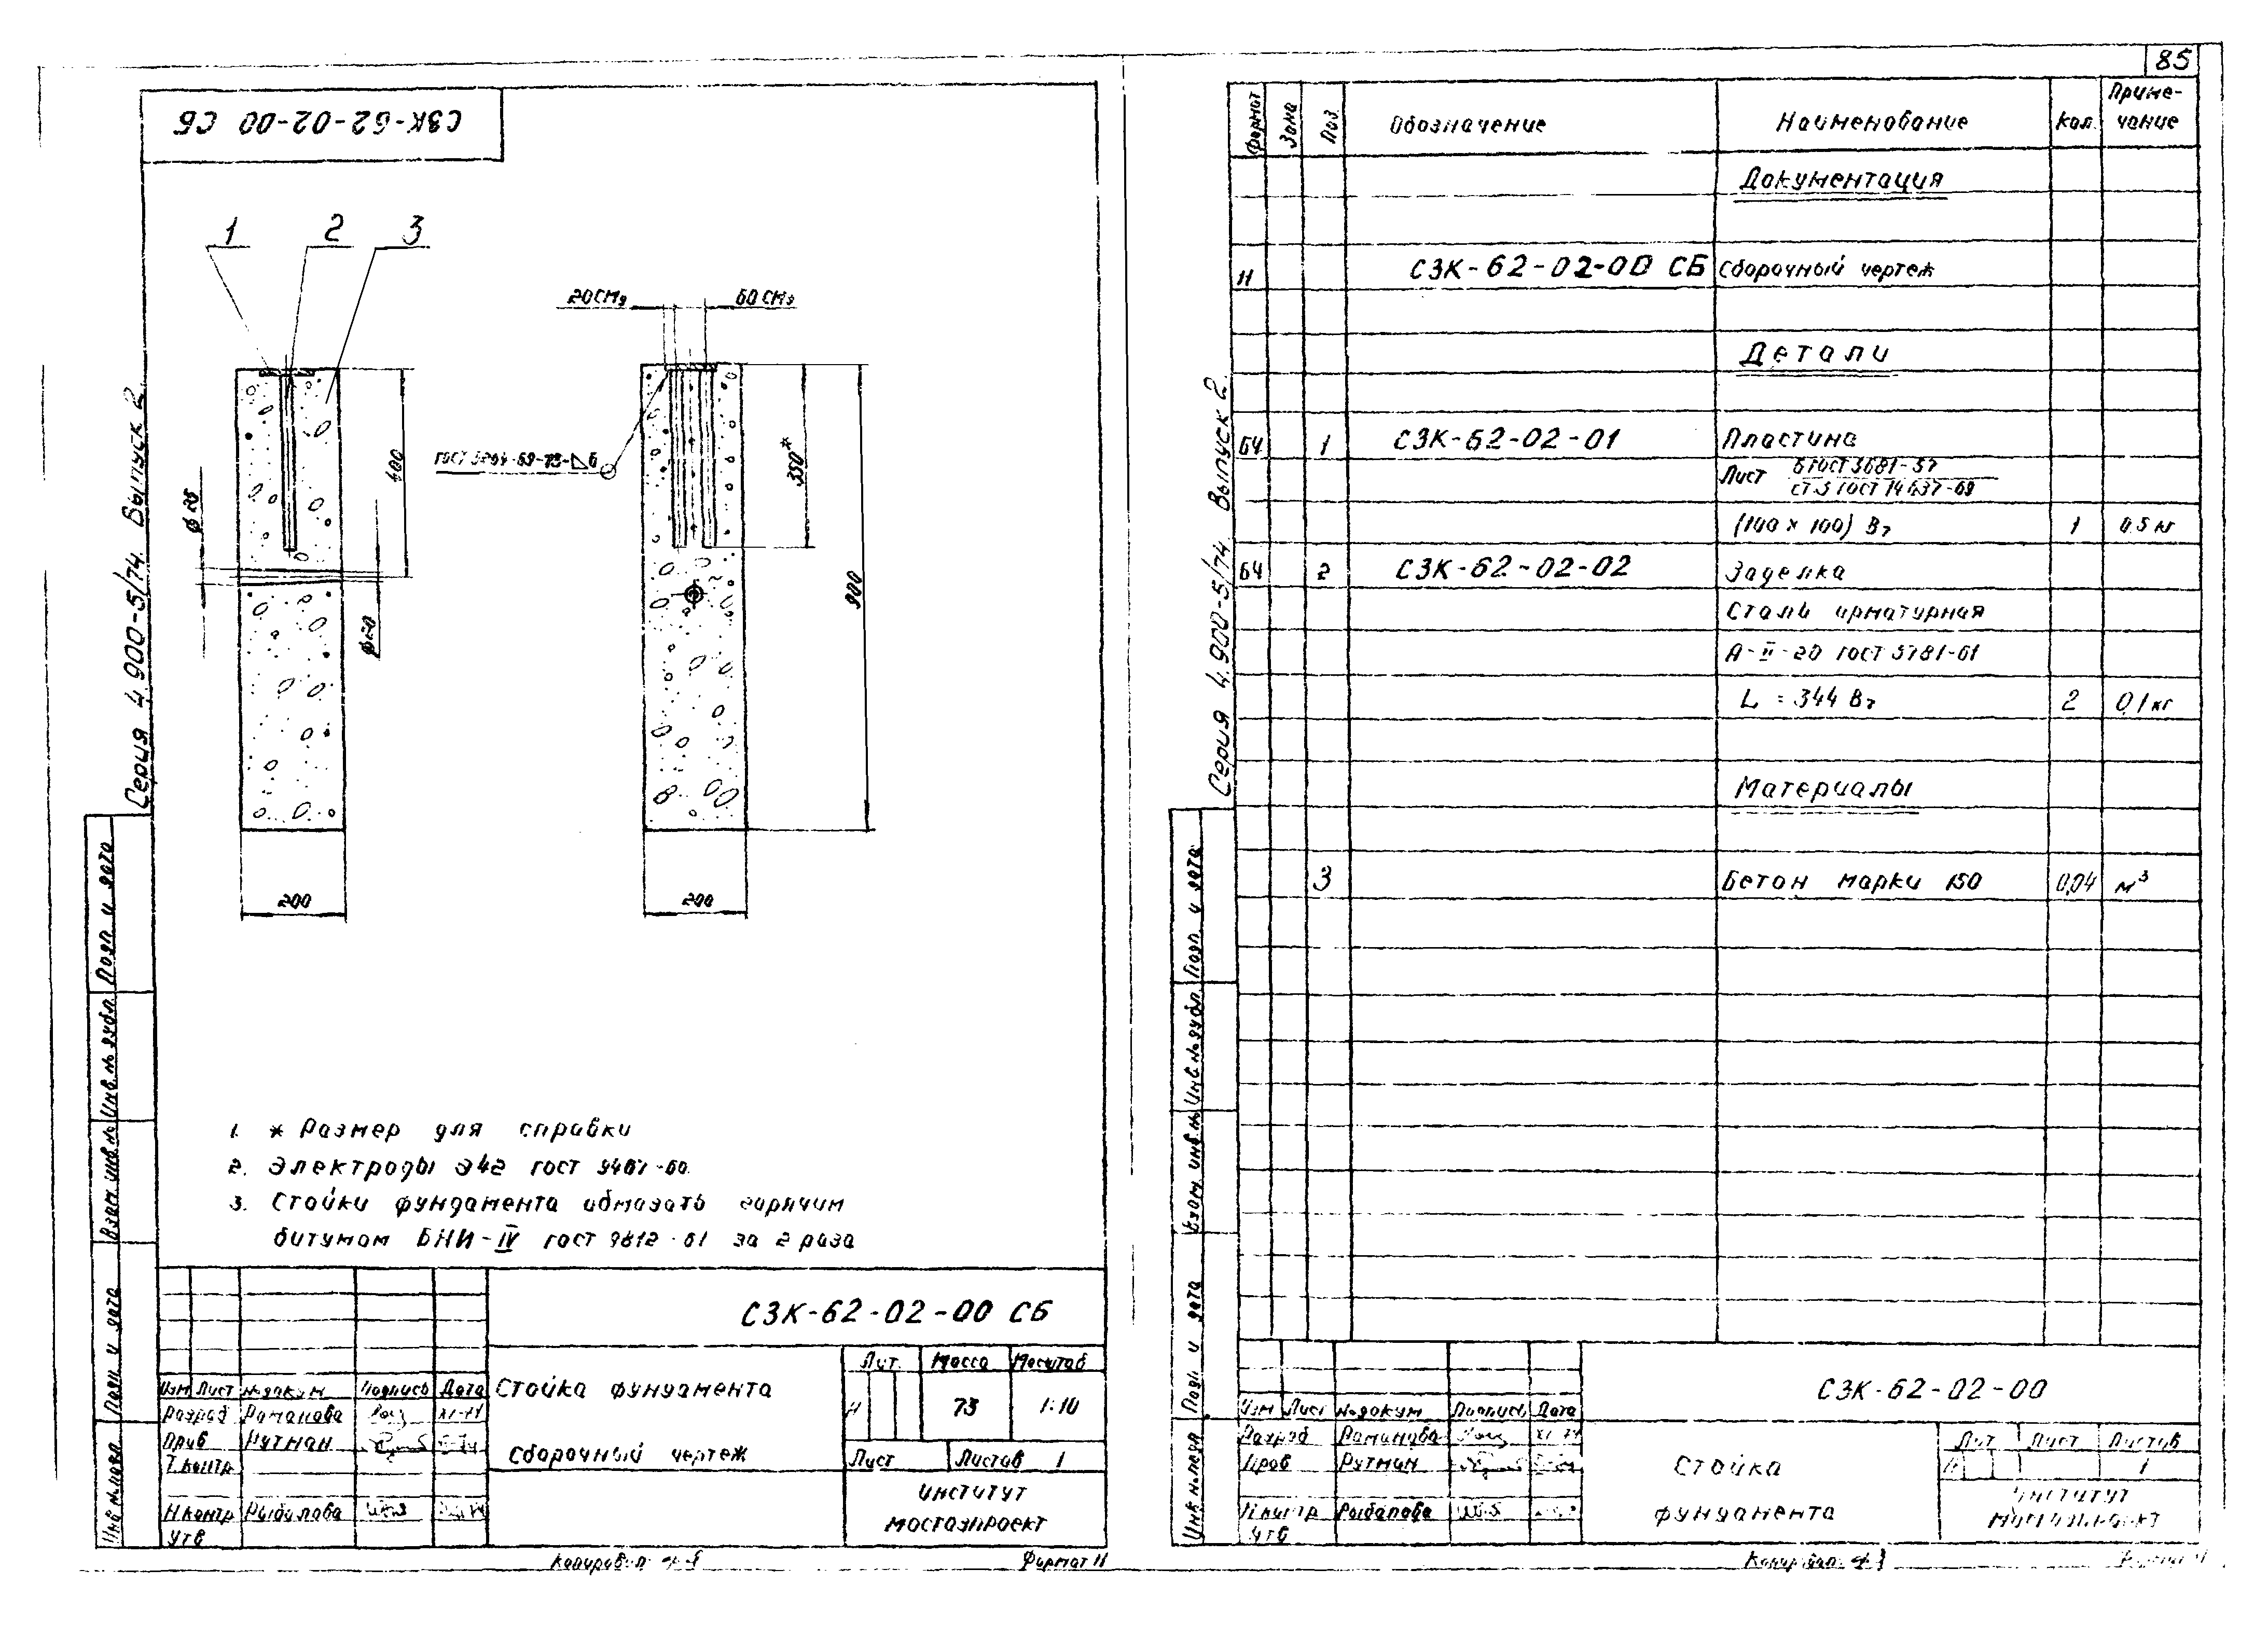 85
СЗК-62-02-00 СБ
1 2 3
20СМ9 60СМ9
400
350*
900
200
200
Серия 4.900-5/74. Выпуск 2.
1. * Размер для справки
2. Электроды Э42 ГОСТ 9467-60.
3. Стойки фундамента обмазать горячим
битумом БНИ-IV ГОСТ 9812-61 за 2 раза
Подп. и дата
Инв.№дубл.
Взам.инв.№
Подп. и дата
Инв.№подл.
СЗК-62-02-00 СБ
Стойка фундамента
Сборочный чертеж
Лит. Масса Масштаб
И 73 1:10
Лист Листов 1
институт
мосгазпроект
Изм Лист № докум Подпись Дата
Разраб Романова XI-74
Пров Рутман
Т.контр
Н.контр Рыбалова
Утв
Формат 11
Серия 4.900-5/74. Выпуск 2.
Формат Зона Поз. Обозначение Наименование Кол. Приме-
чание
Документация
11 СЗК-62-02-00 СБ Сборочный чертеж
Детали
БЧ 1 СЗК-62-02-01 Пластина
Лист
(100 × 100) В7 1 0,5 кг
БЧ 2 СЗК-62-02-02 Заделка
Сталь арматурная
А-II-20 ГОСТ 5781-61
L = 344 В7 2 0,1 кг
Материалы
3 Бетон марки 150 0,04 м³
Подп. и дата
Инв.№дубл.
Взам.инв.№
Подп. и дата
Инв.№подл.
СЗК-62-02-00
Изм Лист № докум Подпись Дата
Разраб Романова XI-74
Пров Рутман
Н.контр Рыбалова
Утв
Стойка
фундамента
Лит Лист Листов
1
институт
мосгазпроект